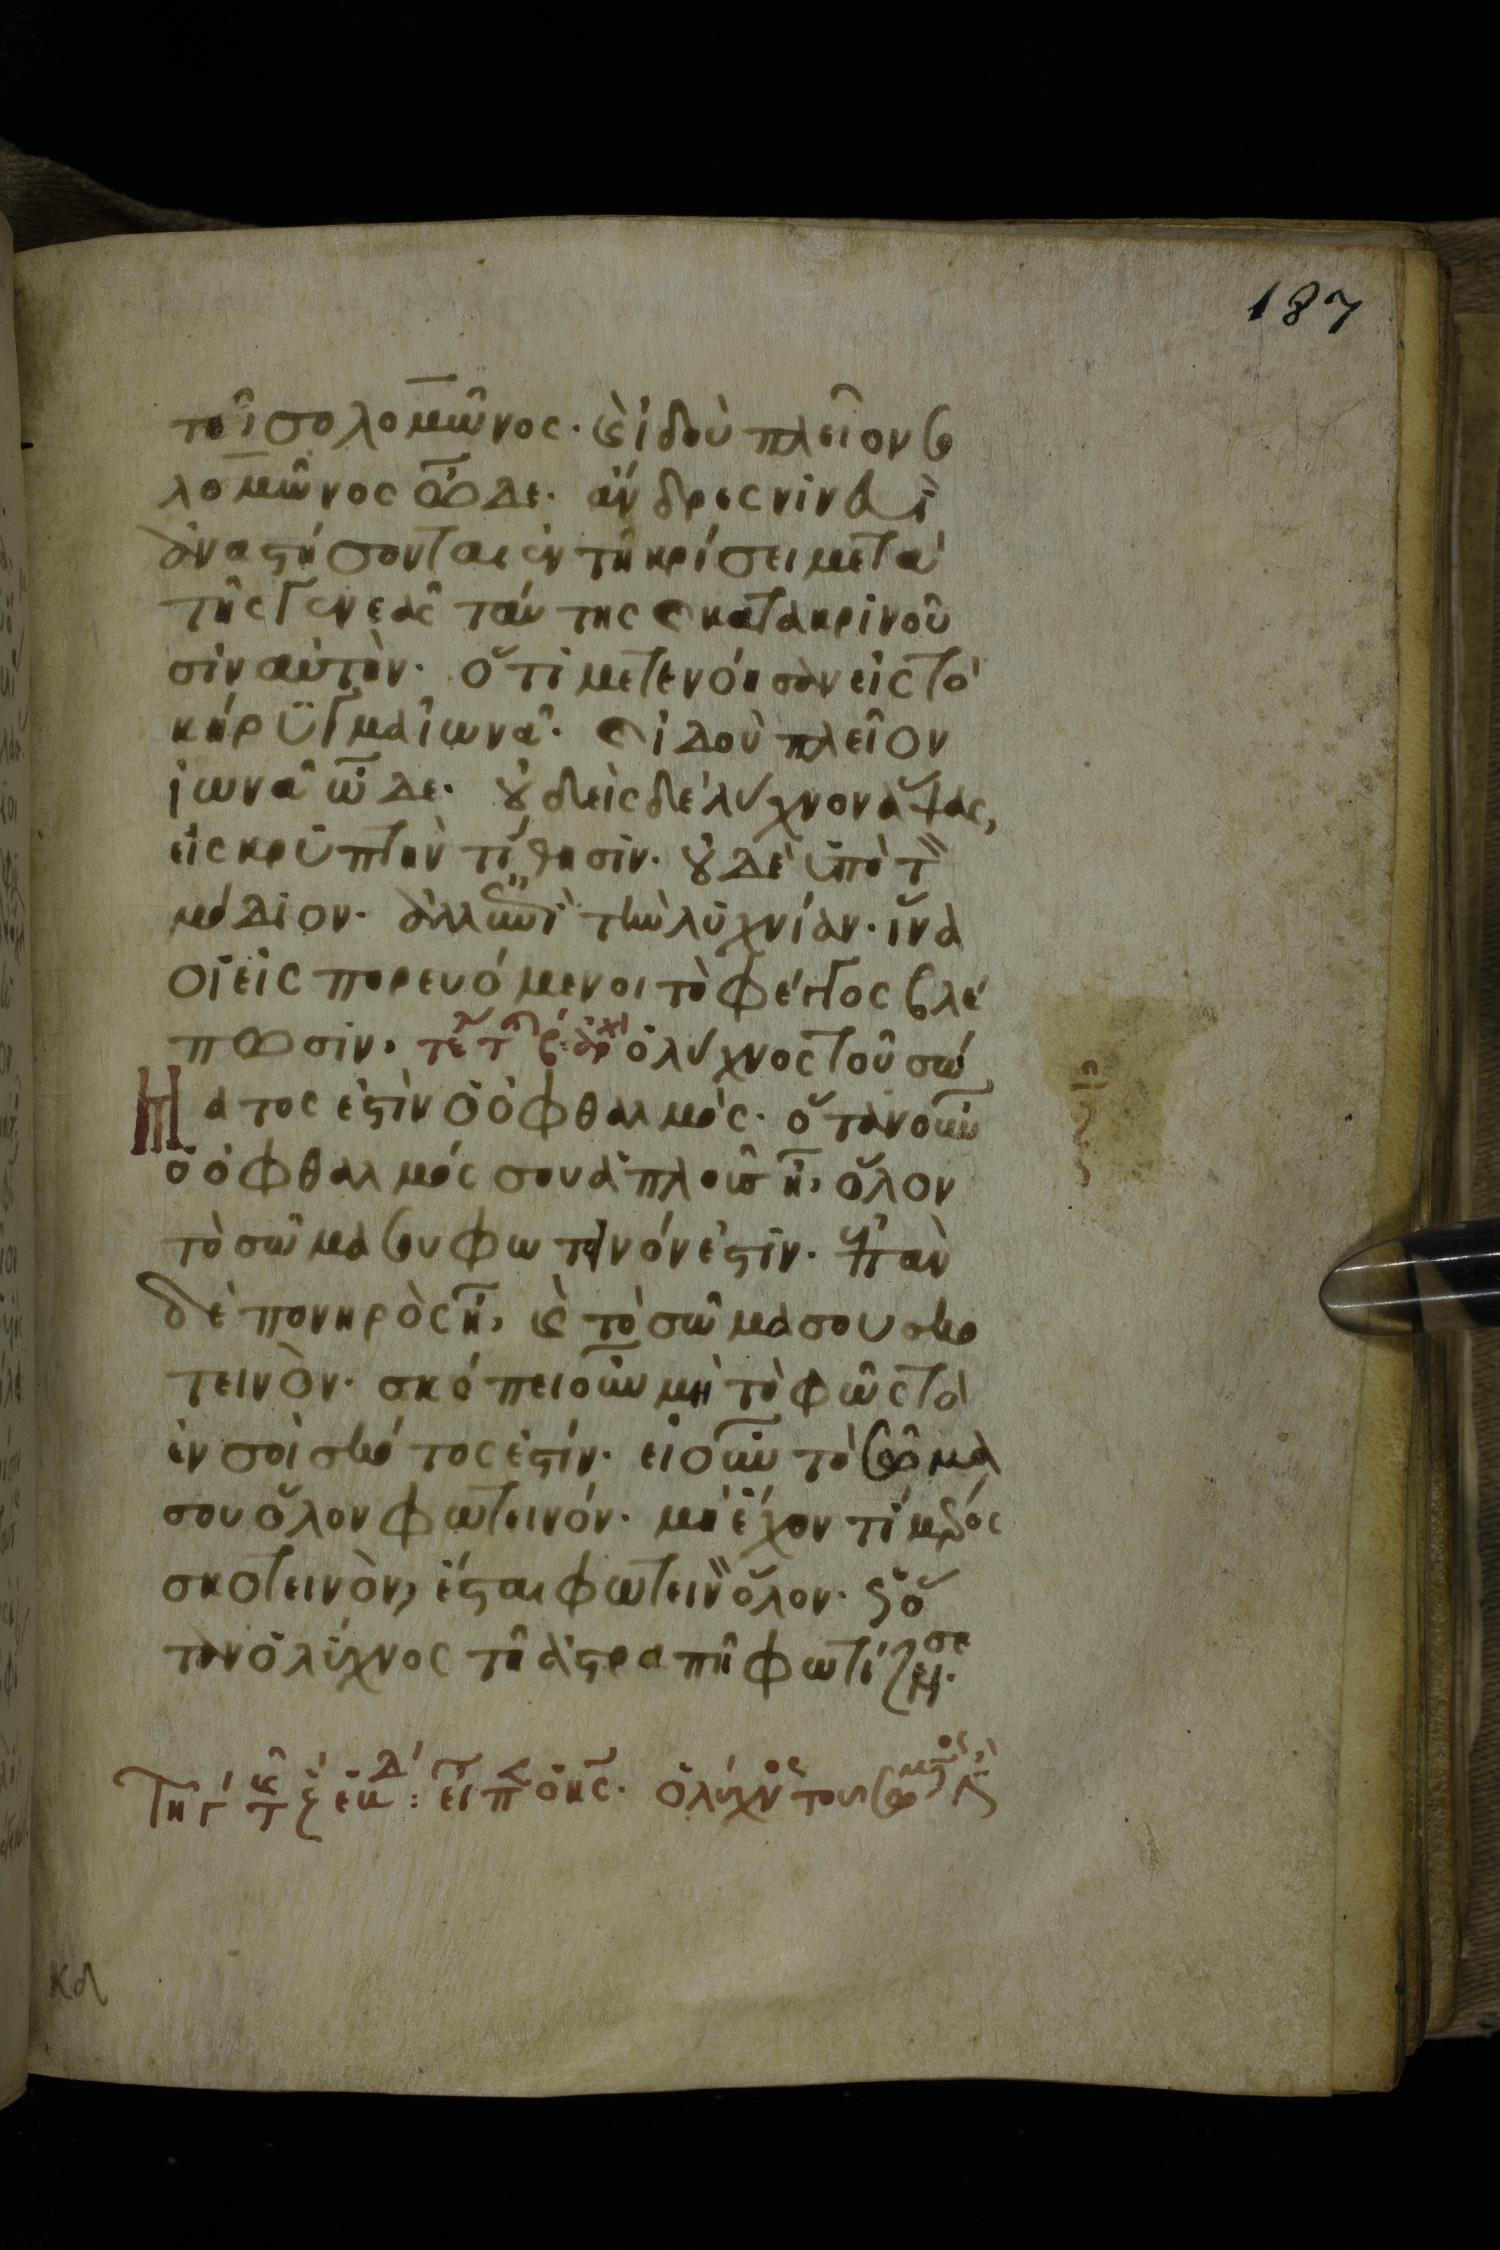 187
τοῦ σολομῶνος· καὶ ἰδοὺ πλεῖον σο
λομῶνος ὧδε· ἄνδρες νινευὶ
ἀναστήσονται ἐν τῆ κρίσει μετὰ
τῆς γενεᾶς ταύτης καὶ κατακρινοῦ
σιν αὐτὴν· ὅτι μετενόησαν εἰς τὸ
κήρυγμα ἰωνᾶ· καὶ ἰδοὺ πλεῖον
ἰωνᾶ ὧδε· οὐδεὶς δὲ λύχνον ἅψας,
εἰς κρυπτὴν τίθησιν· οὐδὲ ὑπὸ τὸν
μόδιον· ἀλλ' ἐπὶ τὴν λυχνίαν· ἵνα
οἱ εἰσπορευόμενοι τὸ φέγγος βλέ
πωσιν· ὁ λύχνος τοῦ σώ
ματος ἐστὶν ὁ ὀφθαλμός· ὅταν οὖν
ὁ ὀφθαλμός σου ἁπλοῦς ἦ, ὅλον
τὸ σῶμα σου φωτεινόν ἐστιν· ἐπὰν
δὲ πονηρὸς ἦ, καὶ τὸ σῶμα σου σκο
τεινὸν· σκόπει οὖν μὴ τὸ φῶς τὸ
ἐν σοὶ σκότος ἐστίν· εἰ οὖν τὸ σῶμα
σου ὅλον φωτεινόν· μὴ ἔχον τί μέρος
σκοτεινὸν, ἔσται φωτεινὸν ὅλον· ὡς ὅ
ταν ὁ λύχνος τῆ ἀστραπῆ φωτίζει σε·
Τῆ γ τ ς εἶπεν ὁ κς· ὁ λύχνος του σώματος